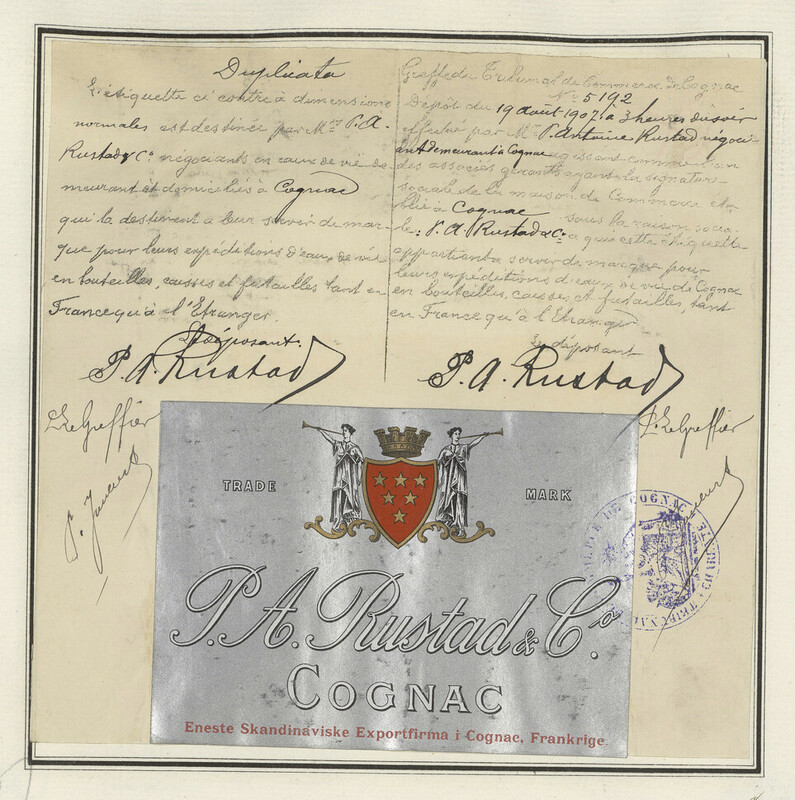 Duplicata
L'étiquette ci contre à dimensions
normales est destinée par Mrs P. A.
Rustad & Co négociants en eaux de vie de-
meurant et domiciliés à Cognac
qui la destinent à leur servir de mar-
que pour leurs expéditions d'eaux de vie
en bouteilles, caisses et futailles tant en
France qu'à l'Etranger.
Le déposant.
P. A. Rustad
P. Le Greffier
Greffe du Tribunal de Commerce de Cognac
No 5192
Dépôt du 19 août 1907 à 3 heures du soir
effectué par Mr P. Antoine Rustad négoci-
ant demeurant à Cognac agissant comme l'un
des associés gérants ayant la signature
sociale de la maison de Commerce éta-
blie à Cognac sous la raison socia-
le: P. A. Rustad & Co à qui cette étiquette
appartient à servir de marque pour
leurs expéditions d'eaux de vie de Cognac
en bouteilles, caisses et futailles, tant
en France qu'à l'Etranger
Le déposant
P. A. Rustad
P. Le Greffier
TRADE MARK
P. A. Rustad & Co.
COGNAC
Eneste Skandinaviske Exportfirma i Cognac, Frankrige.
DE COGNAC